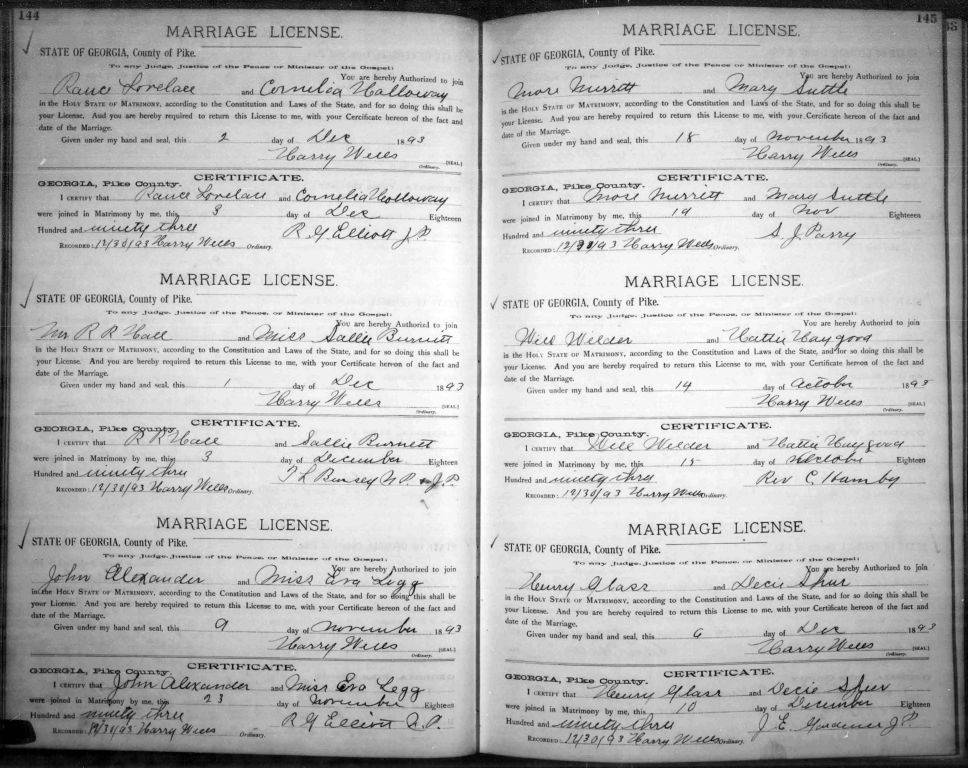 144
MARRIAGE LICENSE.
STATE OF GEORGIA, County of Pike.
To any Judge, Justice of the Peace or Minister of the Gospel:
You are hereby Authorized to join
Rance Lovelace and Cornelia Holloway
in the HOLY STATE OF MATRIMONY, according to the Constitution and Laws of the State, and for so doing this shall be
your License. And you are hereby required to return this License to me, with your Certificate hereon of the fact and
date of the Marriage.
Given under my hand and seal, this 2 day of Dec 1893
Harry Wells [SEAL]
Ordinary.
CERTIFICATE.
GEORGIA, Pike County.
I CERTIFY that Rance Lovelace and Cornelia Holloway
were joined in Matrimony by me, this 3 day of Dec Eighteen
Hundred and ninety three R G Elliott J.P.
RECORDED: 12/30/93 Harry Wells Ordinary.
MARRIAGE LICENSE.
STATE OF GEORGIA, County of Pike.
To any Judge, Justice of the Peace, or Minister of the Gospel:
You are hereby Authorized to join
Mr R R Hall and Miss Sallie Burnett
in the HOLY STATE OF MATRIMONY, according to the Constitution and Laws of the State, and for so doing this shall be
your License. And you are hereby required to return this License to me, with your Certificate hereon of the fact and
date of the Marriage.
Given under my hand and seal, this 1 day of Dec 1893
Harry Wells [SEAL]
Ordinary.
CERTIFICATE.
GEORGIA, Pike County.
I CERTIFY that R R Hall and Sallie Burnett
were joined in Matrimony by me, this 3 day of December Eighteen
Hundred and ninety three T L Bussey N.P. J.P.
RECORDED: 12/30/93 Harry Wells Ordinary.
MARRIAGE LICENSE.
STATE OF GEORGIA, County of Pike.
To any Judge, Justice of the Peace, or Minister of the Gospel:
You are hereby Authorized to join
John Alexander and Miss Eva Legg
in the HOLY STATE OF MATRIMONY, according to the Constitution and Laws of the State, and for so doing this shall be
your License. And you are hereby required to return this License to me, with your Certificate hereon of the fact and
date of the Marriage.
Given under my hand and seal, this 9 day of November 1893
Harry Wells [SEAL]
Ordinary.
CERTIFICATE.
GEORGIA, Pike County.
I CERTIFY that John Alexander and Miss Eva Legg
were joined in Matrimony by me, this 23 day of November Eighteen
Hundred and ninety three R G Elliott J.P.
RECORDED: 12/30/93 Harry Wells Ordinary.
145
MARRIAGE LICENSE.
STATE OF GEORGIA, County of Pike.
To any Judge, Justice of the Peace or Minister of the Gospel:
You are hereby Authorized to join
More Merritt and Mary Suttle
in the HOLY STATE OF MATRIMONY, according to the Constitution and Laws of the State, and for so doing this shall be
your License. And you are hereby required to return this License to me, with your Certificate hereon of the fact and
date of the Marriage.
Given under my hand and seal, this 18 day of November 1893
Harry Wells [SEAL]
Ordinary.
CERTIFICATE.
GEORGIA, Pike County.
I CERTIFY that More Merritt and Mary Suttle
were joined in Matrimony by me, this 19 day of Nov Eighteen
Hundred and ninety three S. J. Parry
RECORDED: 12/30/93 Harry Wells Ordinary.
MARRIAGE LICENSE.
STATE OF GEORGIA, County of Pike.
To any Judge, Justice of the Peace, or Minister of the Gospel:
You are hereby Authorized to join
Will Wilder and Hattie Haygood
in the HOLY STATE OF MATRIMONY, according to the Constitution and Laws of the State, and for so doing this shall be
your License. And you are hereby required to return this License to me, with your Certificate hereon of the fact and
date of the Marriage.
Given under my hand and seal, this 14 day of October 1893
Harry Wells [SEAL]
Ordinary.
CERTIFICATE.
GEORGIA, Pike County.
I CERTIFY that Will Wilder and Hattie Haygood
were joined in Matrimony by me, this 15 day of October Eighteen
Hundred and ninety three Rev C. Hamby
RECORDED: 12/30/93 Harry Wells Ordinary.
MARRIAGE LICENSE.
STATE OF GEORGIA, County of Pike.
To any Judge, Justice of the Peace, or Minister of the Gospel:
You are hereby Authorized to join
Henry Glass and Decie Shur
in the HOLY STATE OF MATRIMONY, according to the Constitution and Laws of the State, and for so doing this shall be
your License. And you are hereby required to return this License to me, with your Certificate hereon of the fact and
date of the Marriage.
Given under my hand and seal, this 6 day of Dec 1893
Harry Wells [SEAL]
Ordinary.
CERTIFICATE.
GEORGIA, Pike County.
I CERTIFY that Henry Glass and Decie
were joined in Matrimony by me, this 10 day of December Eighteen
Hundred and ninety three J. E. Gardener J P
RECORDED: 12/30/93 Harry Wells Ordinary.